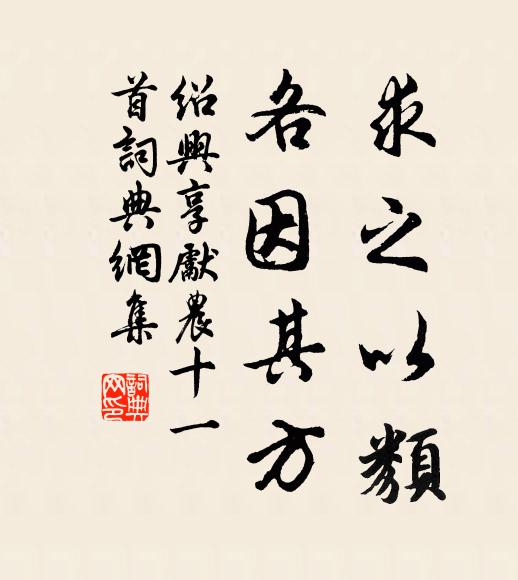 求之以類
各因其方
紹興享獻農十一
首詞典網集
詞典
网印